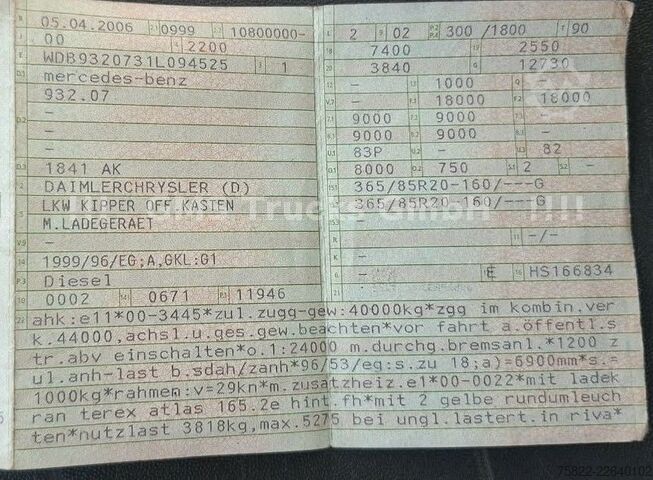 B 05.04.2006 2.1 0999 2.2 10800000-
J 00 4 2200
E WDB9320731L094525 3 1
D.1 mercedes-benz
932.07
D.2 -
-
-
D.3 1841 AK
2 DAIMLERCHRYSLER (D)
5 LKW KIPPER OFF.KASTEN
M.LADEGERAET
V.9 -
14 1999/96/EG;A,GKL:G1
P.3 Diesel
10 0002 14.1 0671 P.1 11946
L 2 9 02 P.2 P.4 300 /1800 T 90
18 7400 19 2550
20 3840 G 12730
12 - 13 1000 Q -
V.7 - F.1 18000 F.2 18000
7.1 9000 7.2 9000 7.3 -
8.1 9000 8.2 9000 8.3 -
U.1 83P U.2 - U.3 82
O.1 8000 O.2 750 S.1 2 S.2 -
15.1 365/85R20-160/---G
15.2 365/85R20-160/---G
15.3 -
R - 11 -/-
K -
6 - 17 E 16 HS166834
21 -
22 ahk:e11*00-3445*zul.zugg-gew:40000kg*zgg im kombin.ver
k.44000,achsl.u.ges.gew.beachten*vor fahrt a.öffentl.s
tr.abv einschalten*o.1:24000 m.durchg.bremsanl.*1200 z
ul.anh-last b.sdah/zanh*96/53/eg:s.zu 18;a)=6900mm*s.=
1000kg*rahmen:v=29kn*m.zusatzheiz.e1*00-0022*mit ladek
ran terex atlas 165.2e hint.fh*mit 2 gelbe rundumleuch
ten*nutzlast 3818kg,max.5275 bei ungl.lastert.in riva*
Trucks GmbH !!!!
75822-22640102